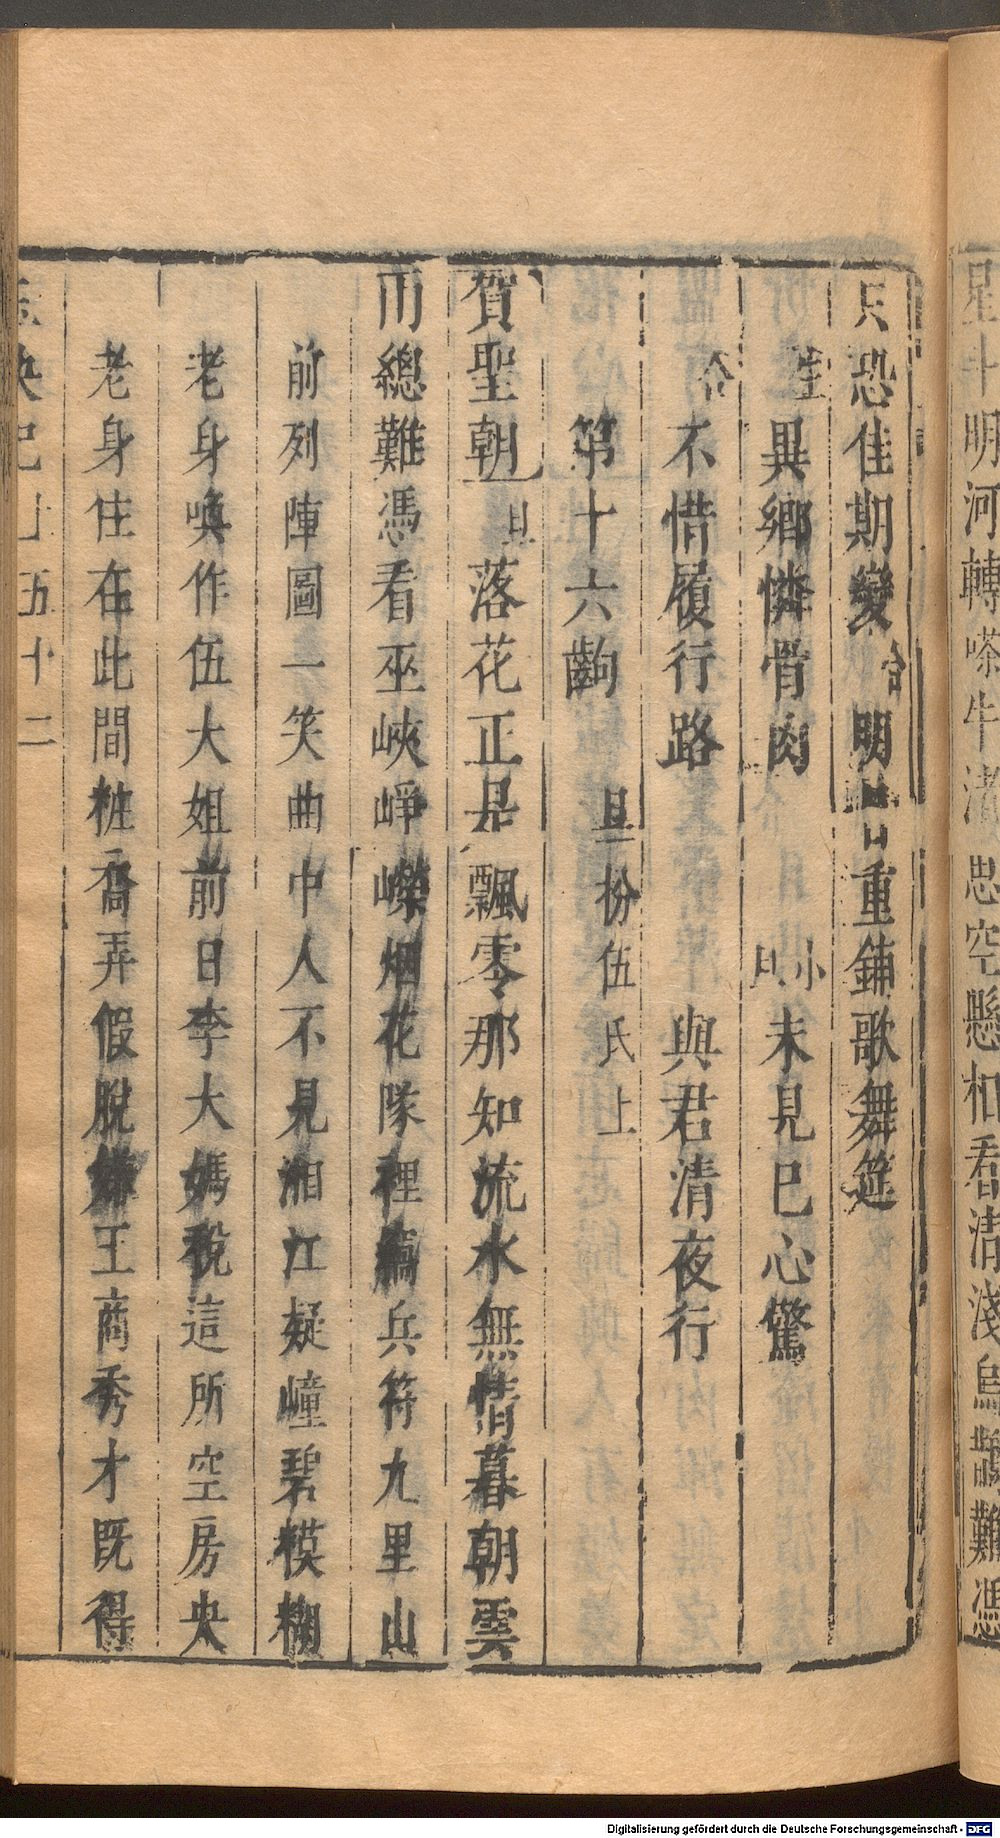 星斗明河轉嗏牛渚思空懸相看清淺烏鵲難憑
只恐佳期變 合明重鋪歌舞筵
生異鄉憐骨肉 小旦未見已心驚
合不惜履行路 與君清夜行
第十六齣 旦扮伍氏上
賀聖朝 旦落花正是飄零那知流水無情暮朝雲
雨總難馮看巫峽崢嶸烟花隊裡兵符九里山
前列陣圖一笑曲中人不見湘江疑幢碧模糊
老身喚作伍大姐前日李大媽稅這所空房央
老身住在此間粧喬弄假脫嫁王商秀才既得
玉玦記 五十二
Digitalisierung gefördert durch die Deutsche Forschungsgemeinschaft - DFG